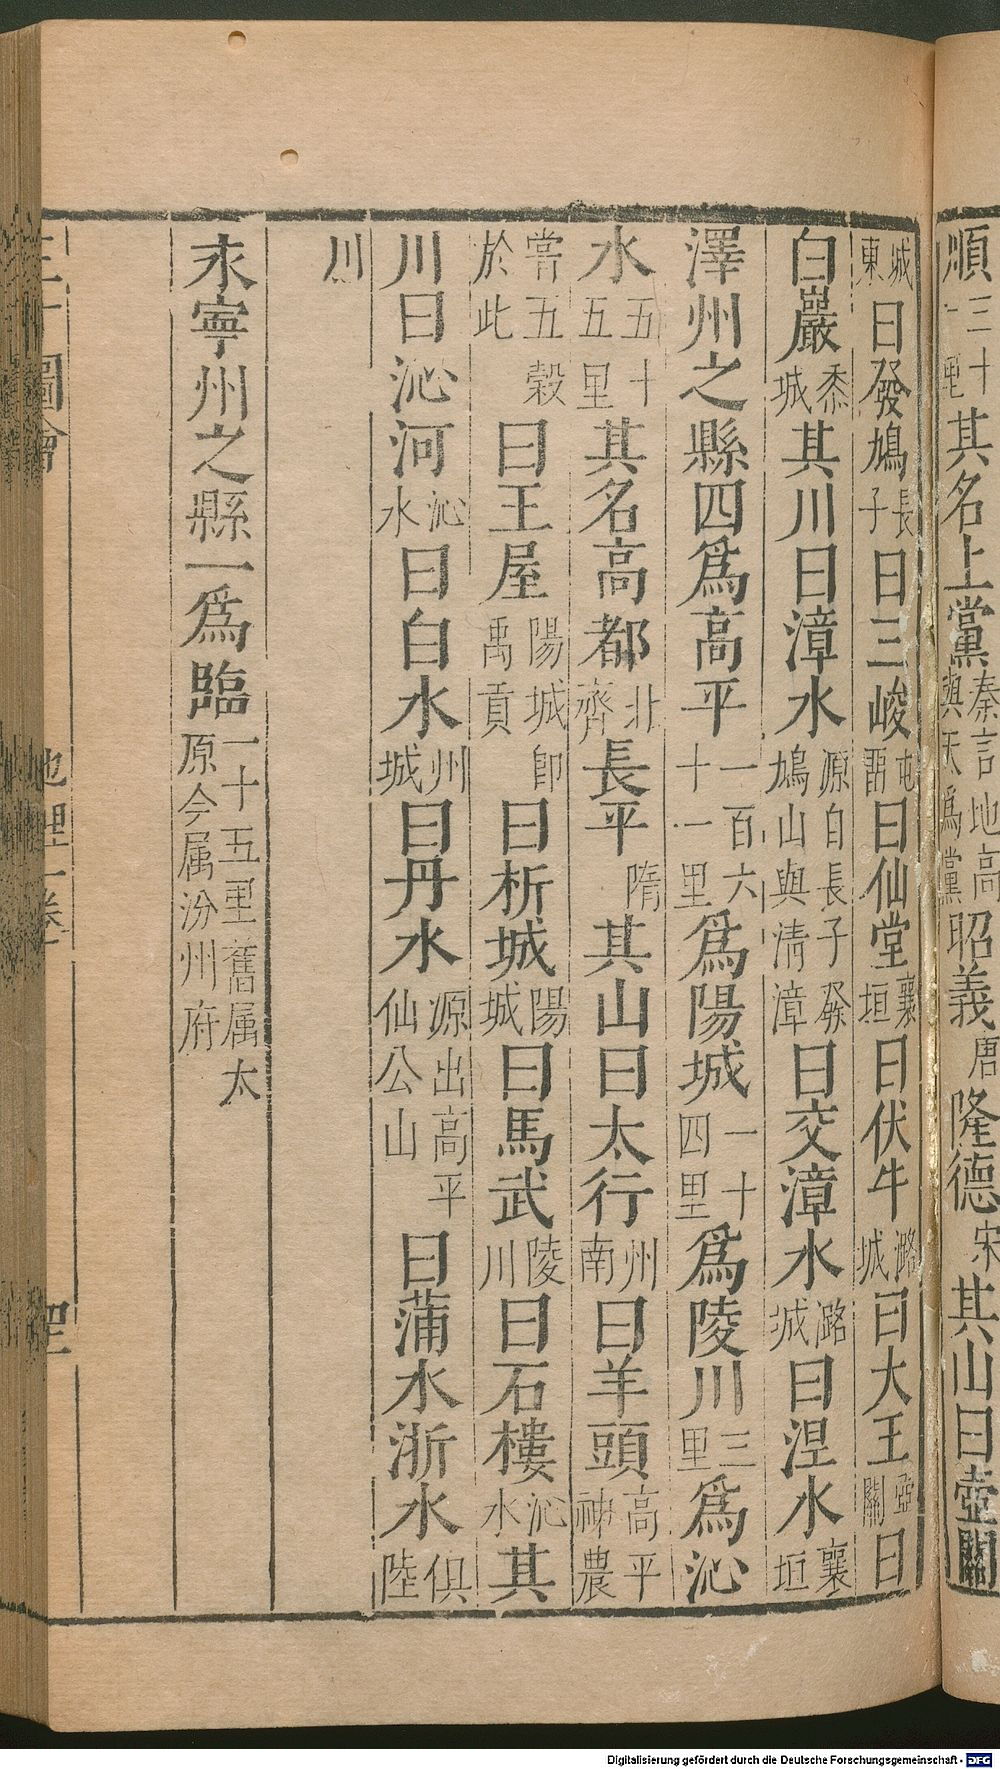 順三十一里其名上黨秦言地高與天爲黨昭義唐隆德宋其山曰壺關
城東曰發鳩長子曰三峻屯留曰仙堂襄垣曰伏牛潞城曰大王壺關曰
白巖黍城其川曰漳水源自長子發鳩山與清漳曰交漳水潞城曰涅水襄垣
澤州之縣四爲高平一百六十一里爲陽城一十四里爲陵川三里爲沁
水五十五里其名高都北齊長平隋其山曰太行州南曰羊頭高平神農
嘗五穀於此曰王屋陽城即禹貢曰析城陽城曰馬武陵川曰石樓沁水其
川曰沁河沁水曰白水州城曰丹水源出高平仙公山曰蒲水浙水俱陸
川
永寧州之縣一爲臨一十五里舊属太原今属汾州府
圖會
地理一卷
Digitalisierung gefördert durch die Deutsche Forschungsgemeinschaft - DFG